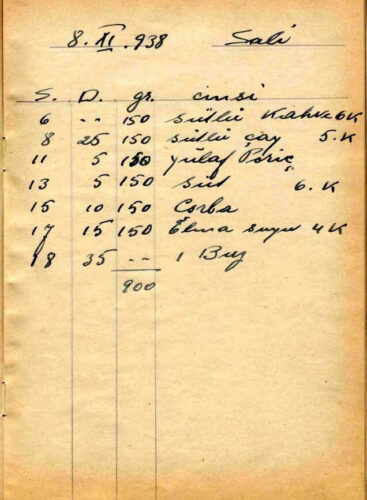 8. XI. 938 Salı
S. D. gr. cinsi
6 -- 150 sütlü Kahve 6 K
8 25 150 sütlü çay 5. K
11 5 150 yulaf Poriç
13 5 150 süt 6. K
15 10 150 Çorba
17 15 150 Elma suyu 4 K
18 35 -- 1 Buz
900